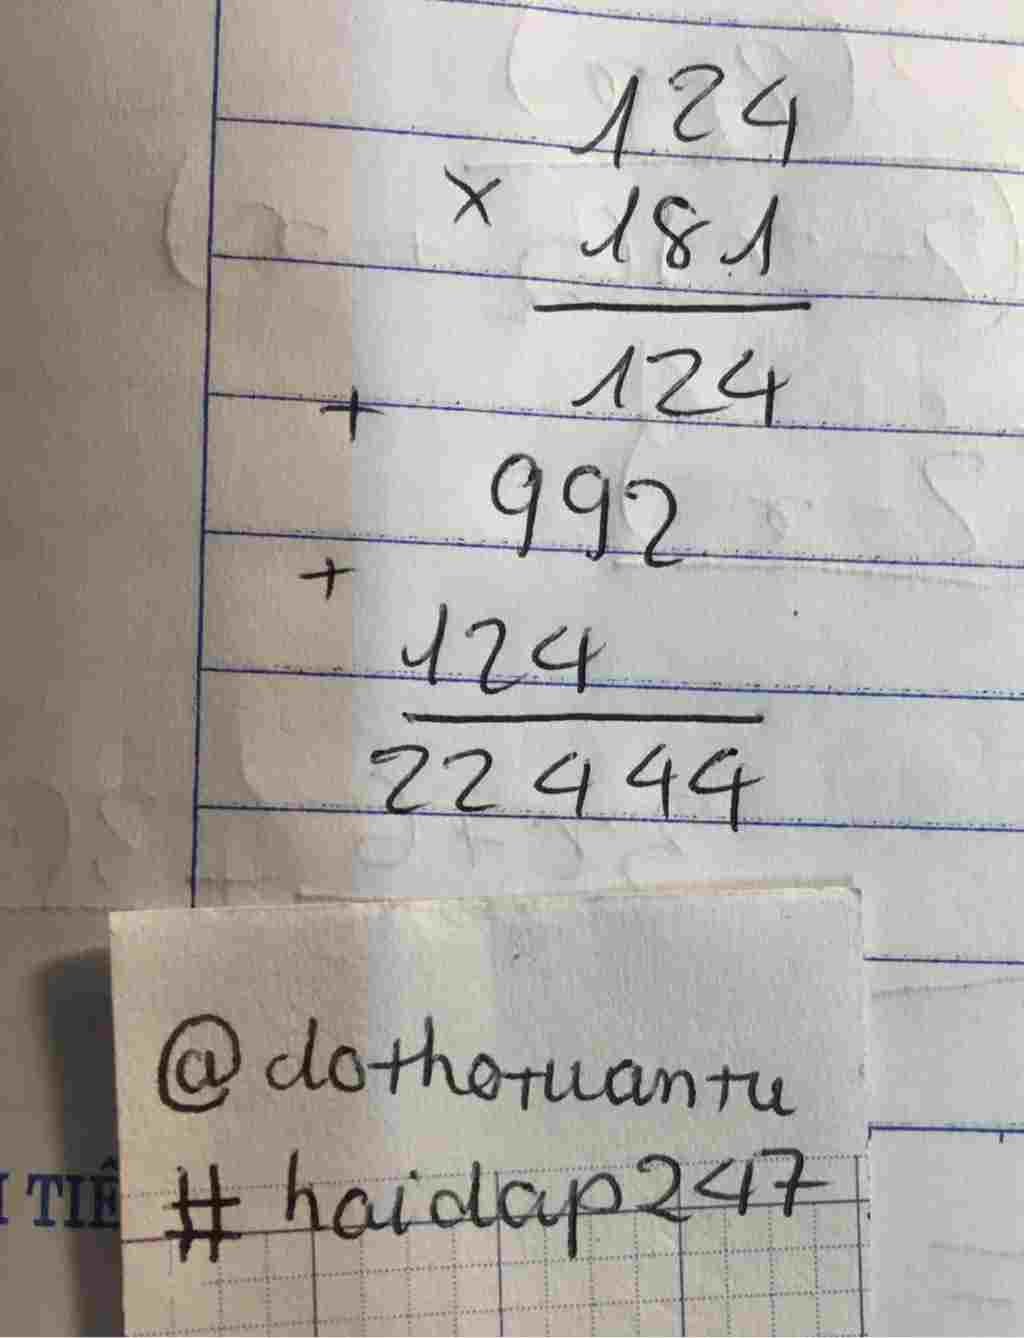 124
× 181
124
+
992
+
124
22444
@dothotuantu
#hoidap247
TIÊ